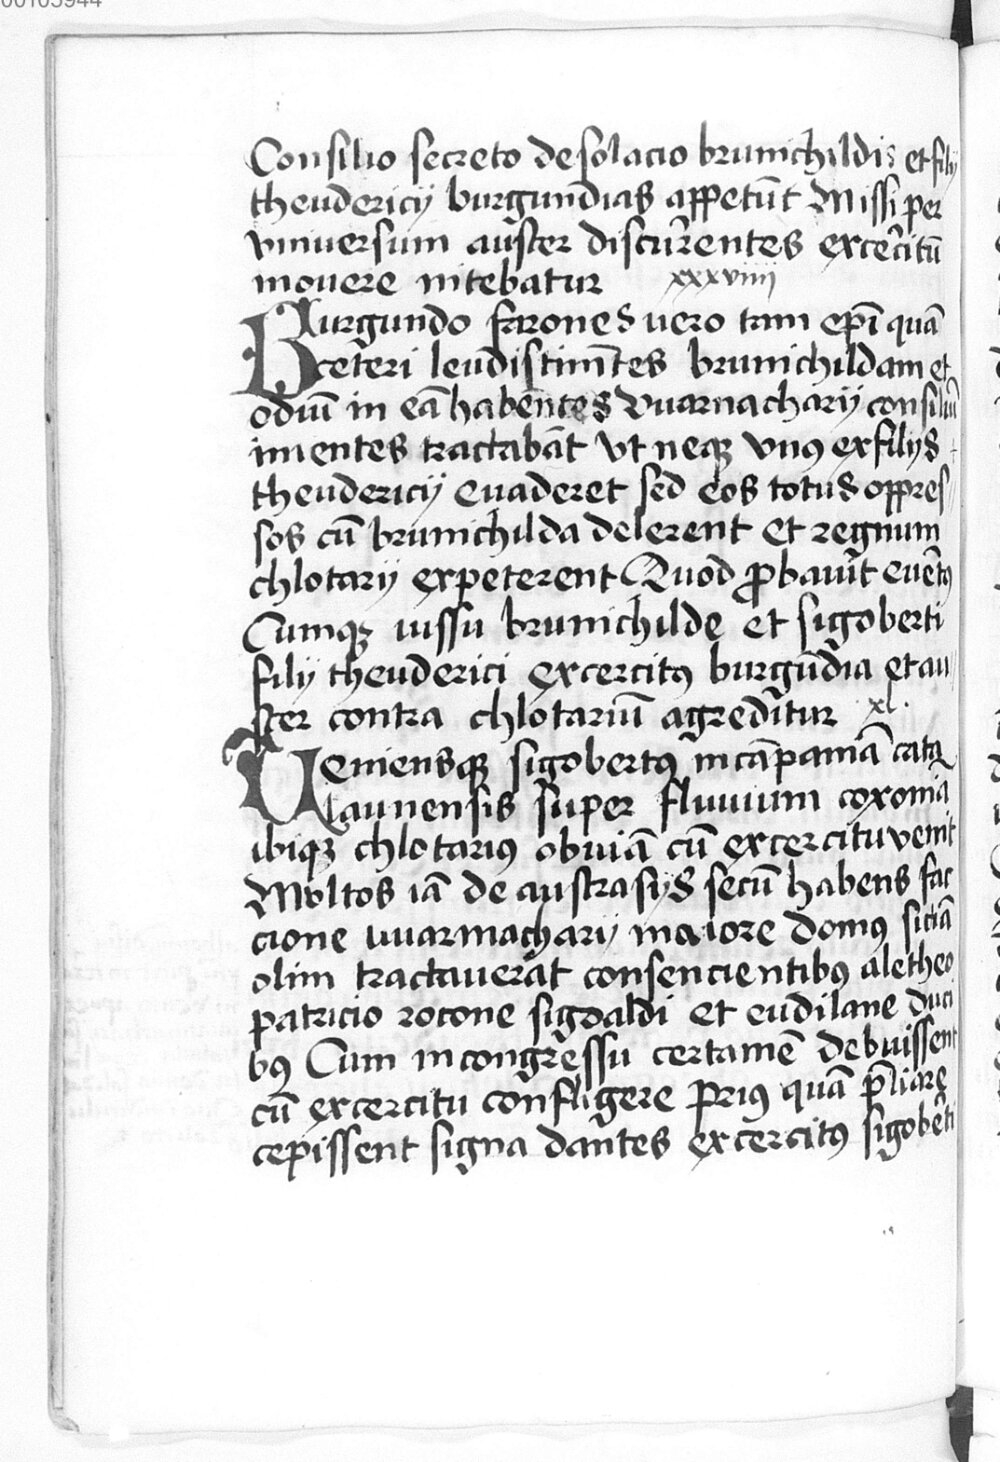 00105944
Consilio secreto de solacio brunichildis et filij
theudericij burgundias appetūt Missi per
vniuersum auster discurrentes excercitū
mouere nitebatur xxxviiij
Burgundo farones vero tam ep̄i quā
ceteri leudis timētes brunichildam et
odiū in eā habentes vuarnacharij consiliū
inientes tractabāt vt neqꝫ vnꝰ ex filijs
theudericij euaderet sed eos totus oppres
sos cū brunichilda delerent et regnum
chlotarij expeterent Quod ꝓbauit euētꝰ
Cumqꝫ iussu brunichilde et sigoberti
filij theuderici excercitꝰ burgūdia et au
ster contra chlotariū agreditur xl.
Veniensqꝫ sigobertꝰ in cāpaniā cata
launensis super fluuium coxonia
ibiqꝫ chlotariꝰ obuiā cū excercitu venit
Moltos iā de austrasijs secū habens fac
cione uuarmacharij maiore domꝰ sic iā
olim tractauerāt consencientibꝰ aletheo
patricio rocone sigoaldi et eudilane duci
bꝰ Cum in congressu certamē debuissent
cū excercitu confligere Priꝰ quā p̄liare
cepissent signa dantes excercitꝰ sigobēti